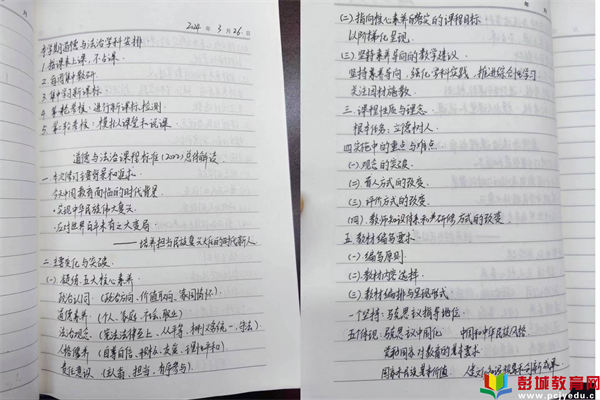 2024 年 3 月 26 日
本学期道德与法治学科安排
1. 按课表上课，不占课.
2. 每周集中教研.
3. 集中学习新课标.
4. 第一轮考核：进行新课标检测.
5. 第二轮考核：模拟上课和说课.
道德与法治课程标准(2022)总体解读
一. 本次修订主要背景和起求.
今天中国教育面临的时代背景.
·实现中华民族伟大复兴
·应对世界百年未有之大变局
——培养担当民族复兴大任的时代新人
二. 主要变化与突破.
(一). 凝练五大核心素养.
政治认同 (政治方向、价值取向、家国情怀).
道德素养. (个人、家庭、社会、职业)
法治观念. (宪法法律至上、
人格修养 (自尊自信、
责任意识 (主人翁、担当、有序参与).
(二) 指向核心素养
以阶梯化呈现.
(三). 坚持素养导向的教学建议.
坚持素养导向，强化学科实践，推进综合性学习
关注因材施教.
三. 课程性质与理念.
根本任务：立德树人.
四 实施中的重点与难点.
(一). 观念的突破.
(二). 育人方式的改变.
(三). 评价方式的改变.
(四). 教师知识体系和
五. 教材编写要求.
(一). 编写原则.
(二). 教材内容选择.
(三) 教材编排与呈现形式.
一个坚持：马克思主义指导地位.
五个体现：马克思主义中国化 中国和中华民族风格.
党和国家对教育的基本要求.
彭城教育网
www.pcjyedu.com